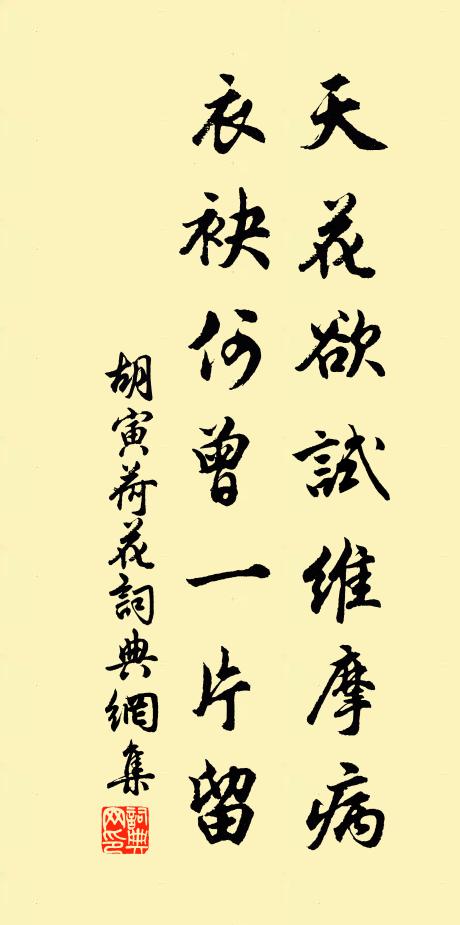 天花欲試維摩病
衣袂何曾一片留
胡寅荷花詞典網集
詞典網印